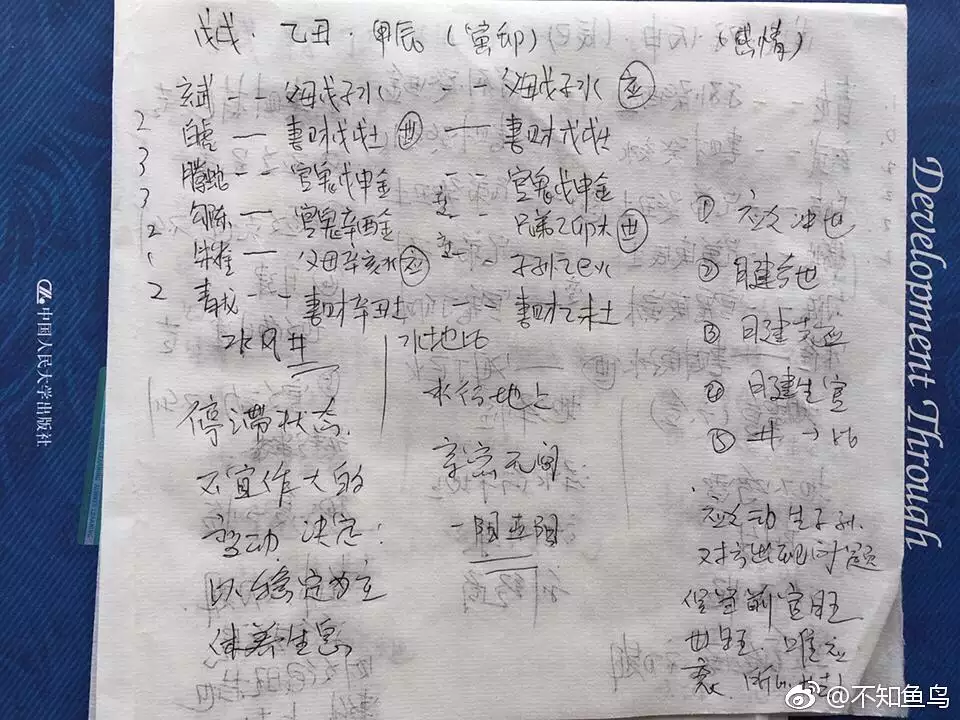 戊戌·乙丑·甲辰(寅卯) (感情)
玄武 -- 父母戊子水 -- 父母戊子水 应
2 白虎 — 妻财戊戌土 世 — 妻财戊戌土
3 腾蛇 -- 官鬼戊申金 -- 官鬼戊申金
3 勾陈 — 官鬼辛酉金 -- 兄弟乙卯木 世
2 朱雀 — 父母辛亥水 应 -- 子孙乙巳火
1
2 青龙 -- 妻财辛丑土 -- 妻财乙未土
水风井
水地比
停滞状态
不宜作大的
变动 决定:
以稳定为主
休养生息
水行地上
亲密无间
一阳五阴
① 应爻冲世
② 日建合世
③ 日建克应
④ 日建生官
⑤ 井→比
应爻动生子孙
对方出现问题
世旺 唯应
衰
中国人民大学出版社
Development Through
@不知鱼鸟